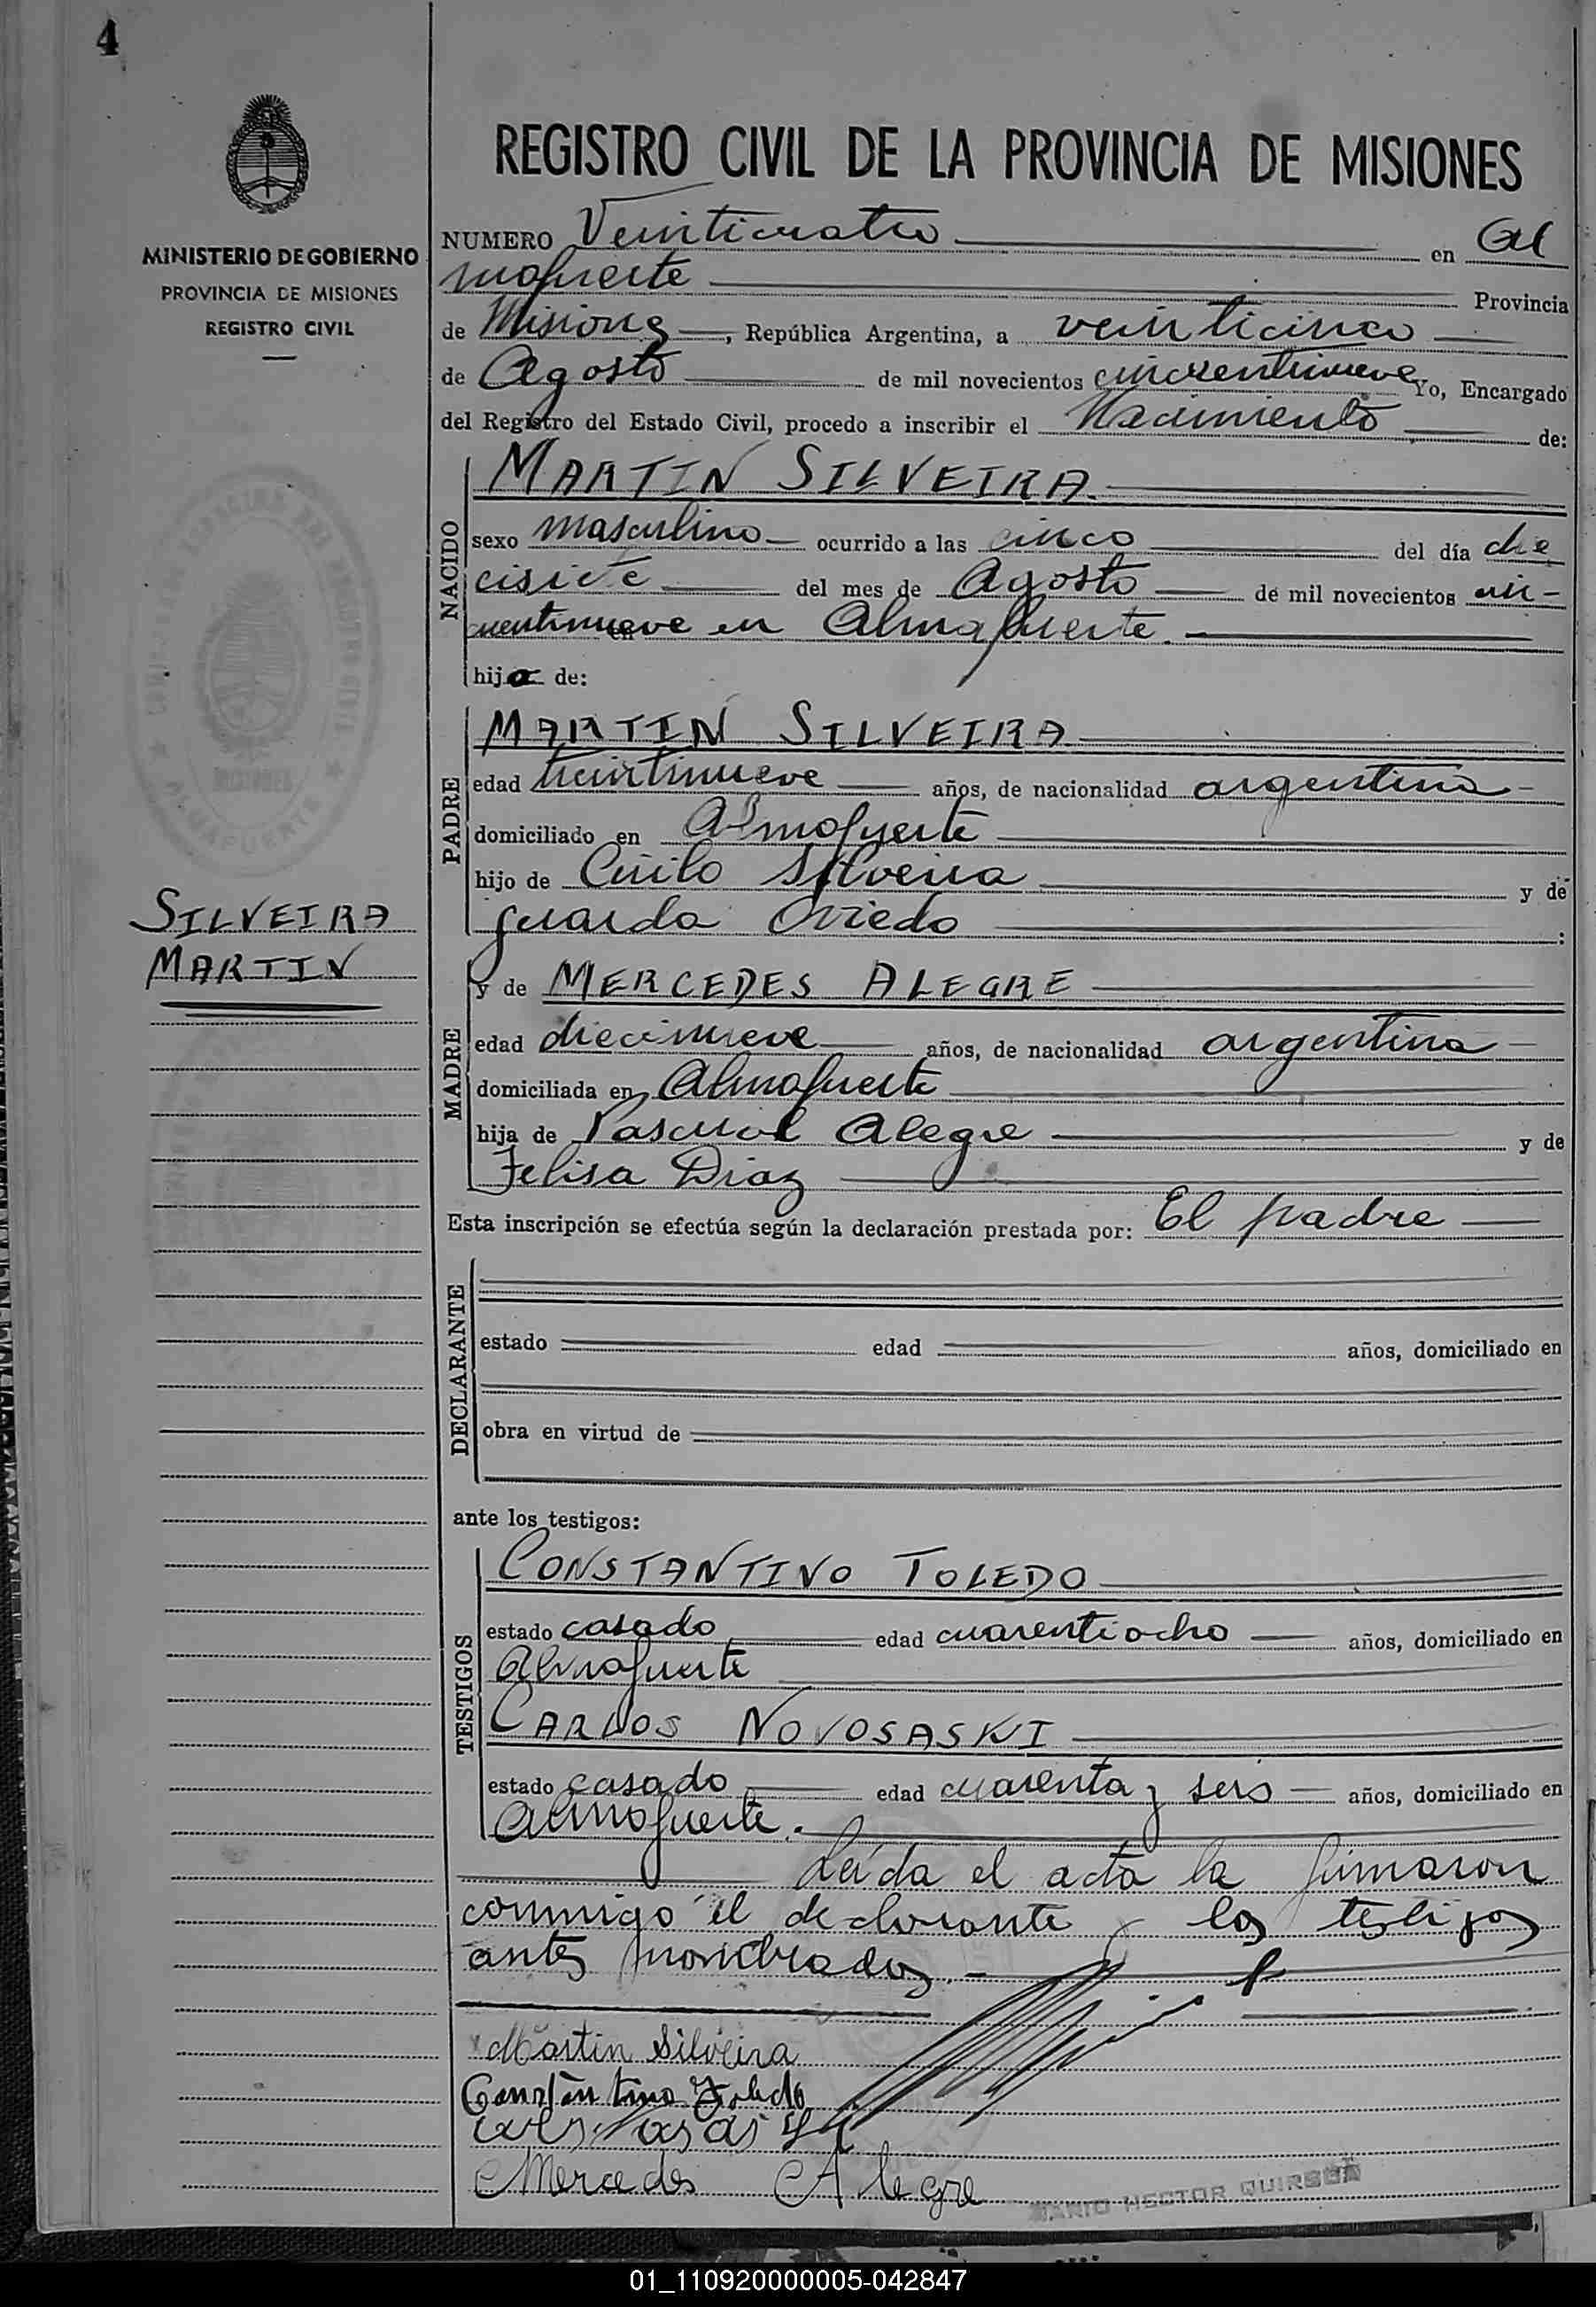 4
MINISTERIO DE GOBIERNO
PROVINCIA DE MISIONES
REGISTRO CIVIL
SILVEIRA
MARTIN
REGISTRO CIVIL DE LA PROVINCIA DE MISIONES
NUMERO Veinticuatro en Al
mafuerte Provincia
de Misiones, República Argentina, a veinticinco
de Agosto de mil novecientos cincuentinueve Yo, Encargado
del Registro del Estado Civil, procedo a inscribir el Nacimiento de:
NACIDO
MARTIN SILVEIRA.
sexo masculino ocurrido a las cinco del día die
cisiete del mes de Agosto de mil novecientos cin-
cuentinueve en Almafuerte.
hijo de:
PADRE
MARTIN SILVEIRA
edad treintinueve años, de nacionalidad argentina
domiciliado en Almafuerte
hijo de Cirilo Silveira y de
Oviedo :
MADRE
y de MERCEDES ALEGRE
edad diecinueve años, de nacionalidad argentina
domiciliada en Almafuerte
hija de Pascual Alegre y de
Felisa Diaz
Esta inscripción se efectúa según la declaración prestada por: El padre
DECLARANTE
estado edad años, domiciliado en
obra en virtud de
ante los testigos:
TESTIGOS
CONSTANTINO TOLEDO
estado casado edad cuarentiocho años, domiciliado en
Almafuerte
CARLOS NOVOSASKI
estado casado edad cuarenta y seis años, domiciliado en
Almafuerte.
Leída el acta la firmaron
conmigo el declarante y los testigos
antes nombrados.-
Martin Silveira
Constantino Toledo
Mercedes Alegre
MARIO HECTOR
01_110920000005-042847